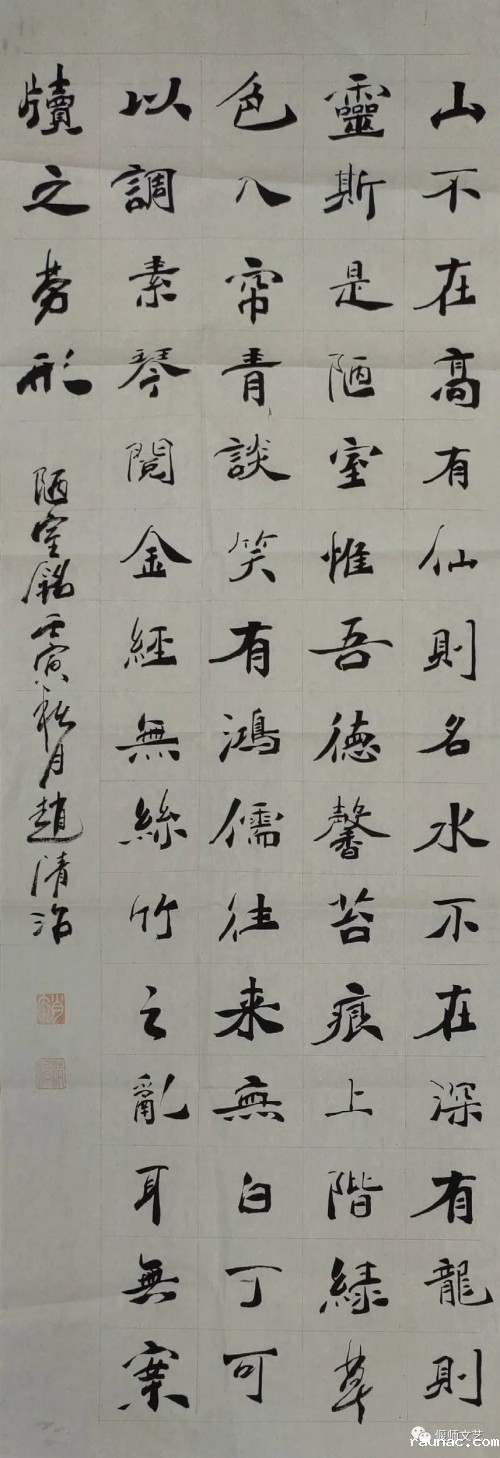 山不在高有仙則名水不在深有龍則
靈斯是陋室惟吾德馨苔痕上階綠草
色入帘青談笑有鴻儒往来無白丁可
以調素琴閱金經無絲竹之亂耳無案
牘之勞形
陋室銘壬寅秋月趙清治
偃师文艺
raunac.com